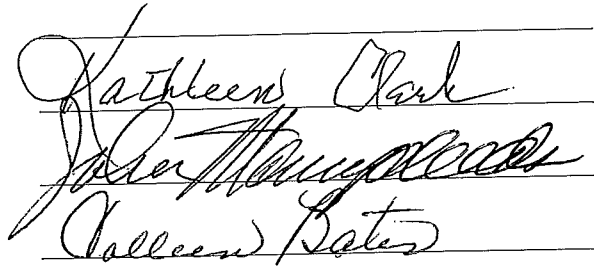 Kathleen Clark
John
Colleen Bates